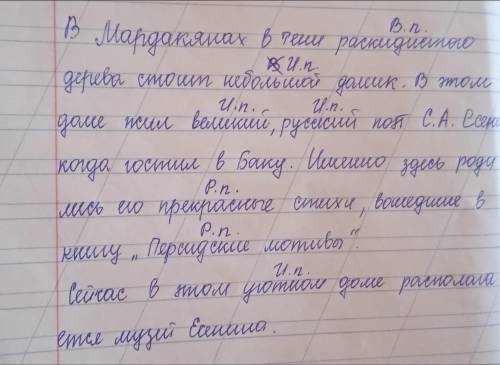 В.п.
В Мардакянах в тени раскидистого
И.п
дерева стоит небольшой домик. В этом
И.п. И.п.
доме жил великий, русский поэт С.А. Есени
когда гостил в Баку. Именно здесь роди
Р.п.
лись его прекрасные стихи, вошедшие в
Р.п.
книгу „Персидские мотивы".
И.п.
Сейчас в этом уютном доме располага
ется музей Есенина.